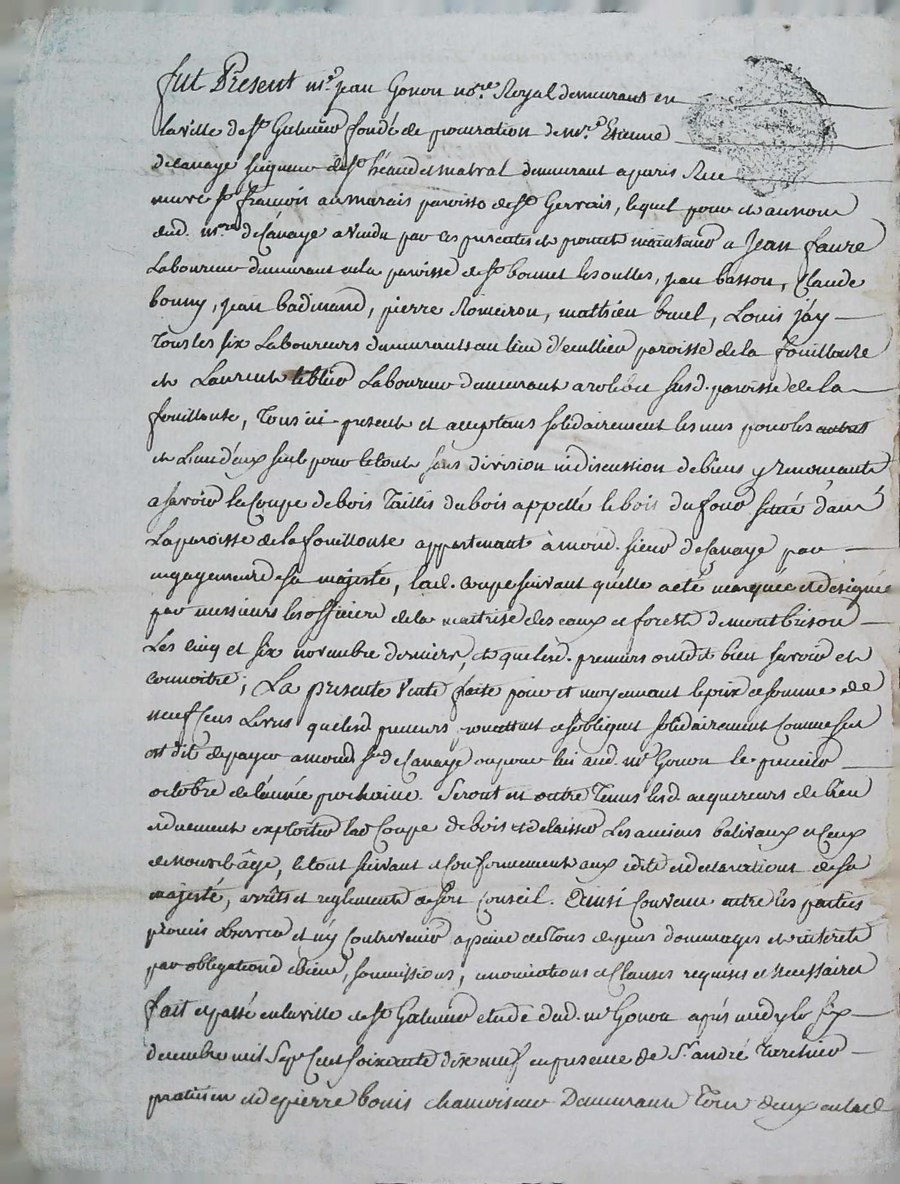 fut Present me. jean Gonon nore. Royal demeurant en
la ville de st Galmier fondé de procuration de mre. Etienne
decanaye seigneur de st héand et malval demeurant a paris Rue
neuve st françois au marais paroisse de st Gervais, lequel pour et au nom
dud. mre deCanaye a vendu par ces presentes et promet maintenir a Jean faure
Laboureur demeurant en la paroisse de st bonnet les oulles, jean basson, Claude
bonny, jean badinand, pierre Romeiron, mathieu bruel, Louis jäy
Tous les six Laboureurs demeurants au lieu d'eculieu paroisse de la fouillouse
et Laurent Laboureur demeurant a susd. paroisse de la
fouillouse, Tous ici presents et acceptans solidairement les uns pour les autres
et L'un d'eux seul pour le tout sans division ni discussion de biens y renonçants
a savoir la Coupe de bois Taillis du bois appellé le bois du four situé dans
La paroisse de la fouillouse appartenant à mond. sieur deCanaye par
engagement de sa majesté, lad. coupe suivant quelle a eté marquée et designée
par messieurs les officiers de la maitrise des eaux et forests de montbrison
Les cinq et six novembre dernier, et que lesd. preneurs ont dit bien savoir et
connoitre; La presente Vente faite pour et moyennant le prix et somme de
neuf Cens Livres que lesd preneurs promettent et s'obligent solidairement Comme sus
est dit de payer a mond sr deCanaye ou pour lui aud. me Gonon le premier
octobre de l'année prochaine. Seront en outre Tenus lesd. acquereurs de bien
et duement exploiter lad Coupe de bois et de laisser Les anciens balivaux et Ceux
de nouvel âge, le tout suivant et Conformement aux edits et declarations de sa
majesté, arrêts et reglements de son Conseil. Ainsi Convenu entre les parties
promis observer et n'y Contrevenir a peine de Tous depens dommages et interets
par obligations de biens, soumissions, renonciations et Clauses requises et necessaires
fait et passé en la ville de st Galmier etude dud. me Gonon après midy le six
decembre mil Sept Cent soixante dix neuf en presence de Sr. andré
praticien et de pierre bonis chamoiseur Demeurants Tous deux en lad